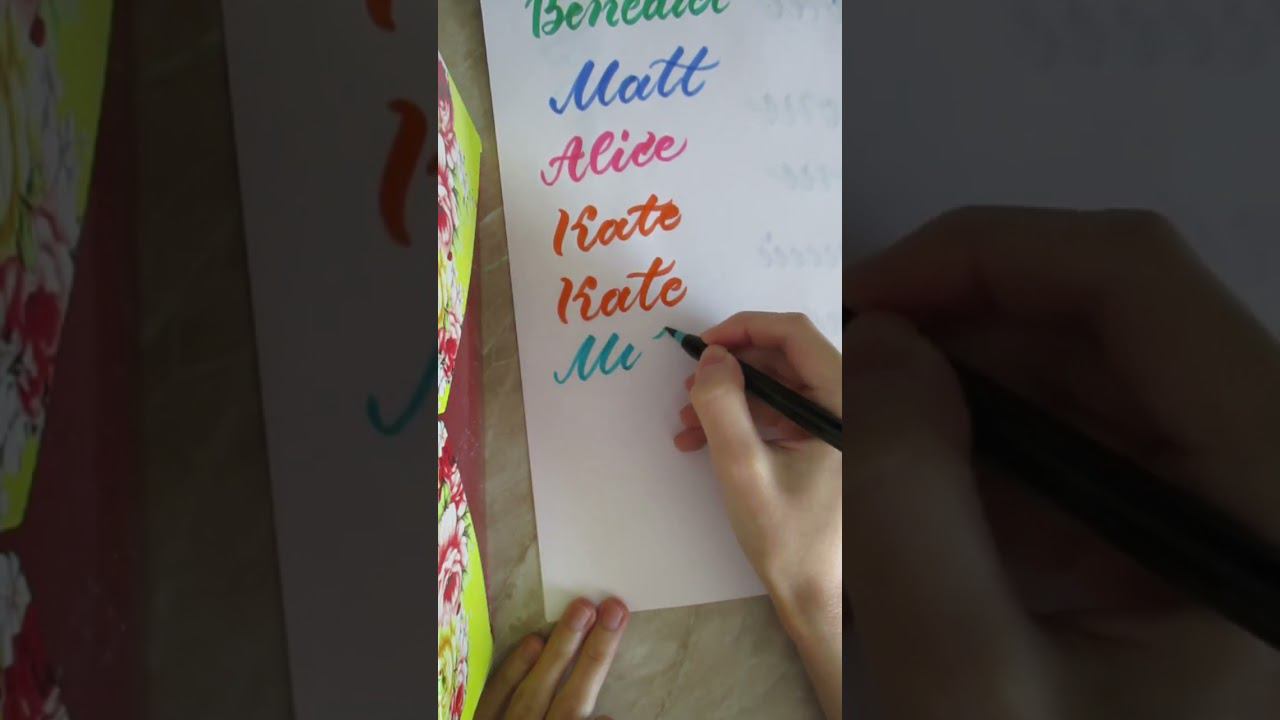 Benedict
Matt
Alice
Kate
Kate
Mi